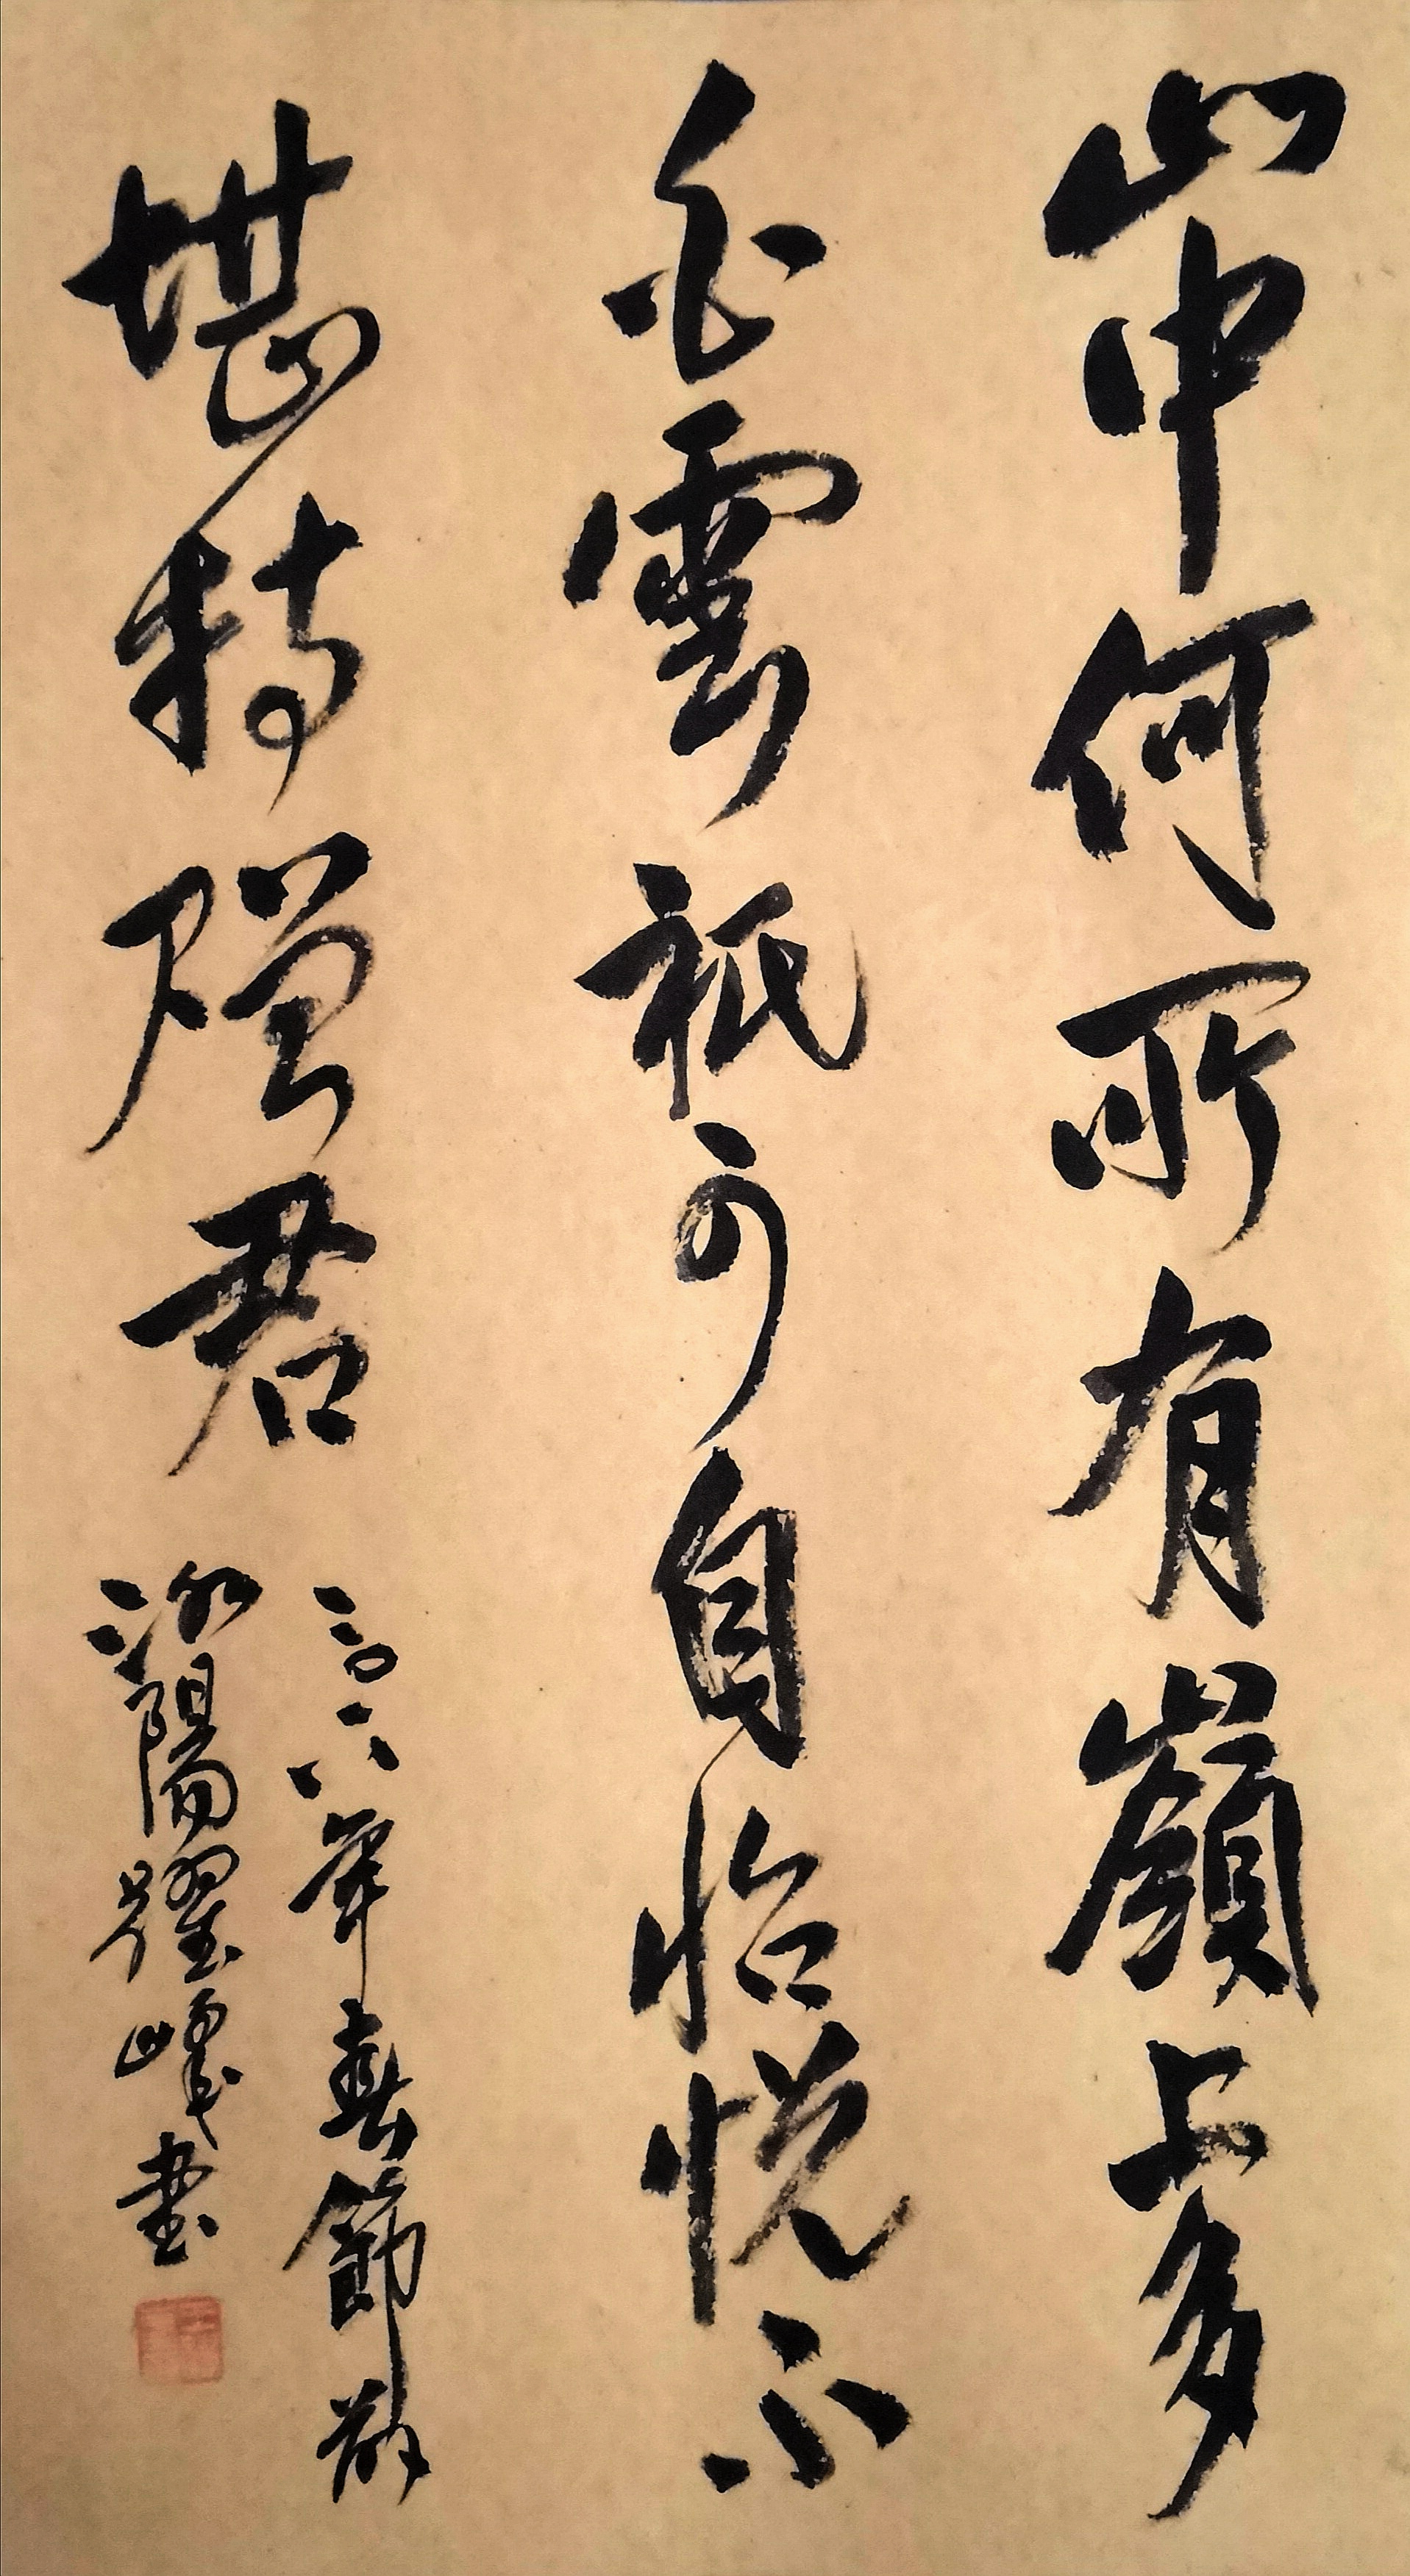 山中何所有嶺上多
白雲祇可自怡悦不
堪持贈君
二〇一八年春節前
陽躍峰書